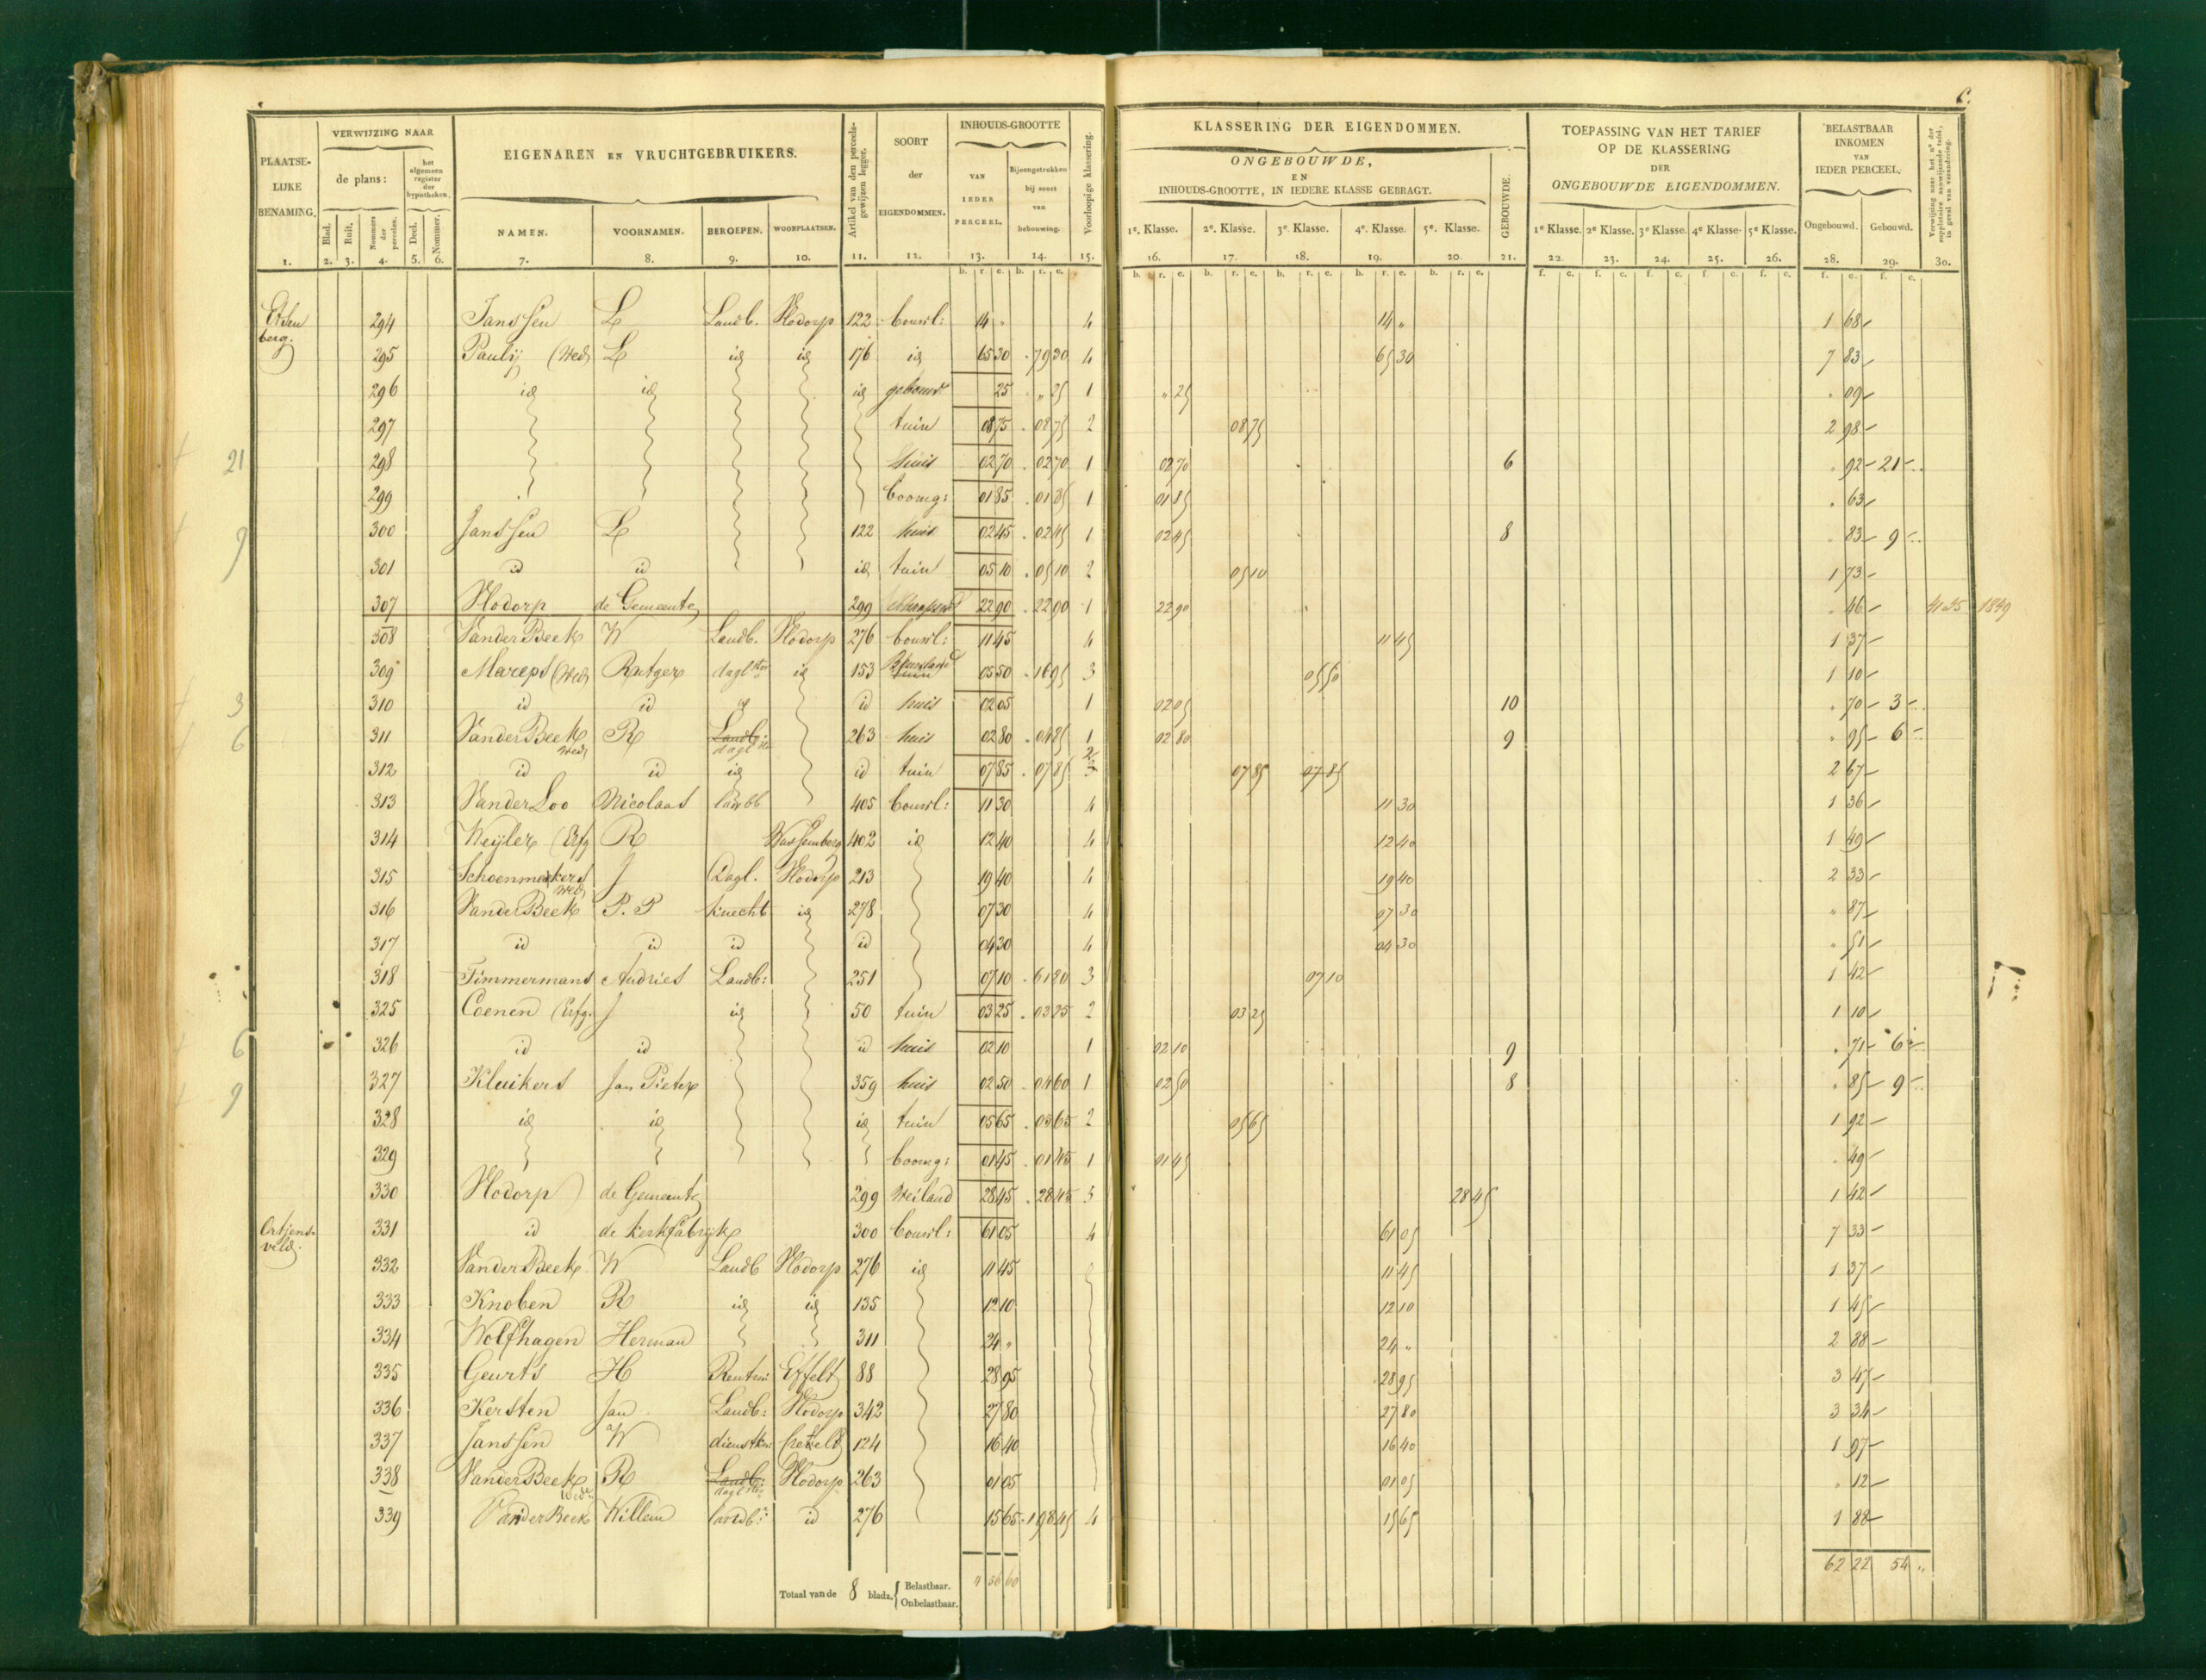 C.
PLAATSELIJKE BENAMING.
VERWIJZING NAAR
de plans:
het algemeen register der hypotheken.
Blad. Ruit. Nommers der perceelen. Deel. Nommer.
EIGENAREN EN VRUCHTGEBRUIKERS.
NAMEN. VOORNAMEN. BEROEPEN. WOONPLAATSEN.
Artikel van den perceelsgewijzen legger.
SOORT der EIGENDOMMEN.
INHOUDS-GROOTTE
VAN IEDER PERCEEL.
Bijeengetrokken bij soort van bebouwing.
Voorloopige klassering.
KLASSERING DER EIGENDOMMEN.
ONGEBOUWDE,
EN
INHOUDS-GROOTTE, IN IEDERE KLASSE GEBRAGT.
1e. Klasse. 2e. Klasse. 3e. Klasse. 4e. Klasse. 5e. Klasse.
GEBOUWDE.
TOEPASSING VAN HET TARIEF
OP DE KLASSERING
DER
ONGEBOUWDE EIGENDOMMEN.
1e Klasse. 2e Klasse. 3e Klasse. 4e Klasse. 5e Klasse.
BELASTBAAR
INKOMEN
VAN
IEDER PERCEEL.
Ongebouwd. Gebouwd.
Verwijzing naar het no. der suppletoire aanwijzende tafel, in geval van verandering.
1. 2. 3. 4. 5. 6. 7. 8. 9. 10. 11. 12. 13. 14. 15. 16. 17. 18. 19. 20. 21. 22. 23. 24. 25. 26. 28. 29. 30.
294 Janssen L Landb. Vlodorp 122 bouwl: 14 " 4 14 " 1 68
berg. 295 Paulij (Wed) L id id 176 id 65 30 79 30 4 65 30 7 83
296 id id id 25 " 25 1 " 25 " 09
297 tuin 08 75 08 75 2 08 75 2 98
21 298 huis 02 70 02 70 1 02 70 6 " 92 21
299 boomg: 01 85 01 85 1 01 85 " 63
9 300 Janssen L 122 huis 02 45 02 45 1 02 45 8 " 83 9
301 id id id tuin 05 10 05 10 2 05 10 1 73
307 Vlodorp de Gemeente 299 22 90 22 90 1 22 90 " 46 1849
308 Van der Beek W Landb. Vlodorp 276 bouwl: 11 45 4 11 45 1 37
309 (Wed) Rutger daglster id 153 05 50 16 95 3 05 50 1 10
3 310 id id id id huis 02 05 1 02 05 10 " 70 3
6 311 Van der Beek Wed R Landb: 263 huis 02 80 04 85 1 02 80 9 " 95 6
312 id id id id tuin 07 85 07 85 2 07 85 07 85 2 67
313 Van der Loo Nicolaas 405 bouwl: 11 30 4 11 30 1 36
314 Weijler (Erfg R Wassemberg 402 id 12 40 4 12 40 1 49
315 Schoenmakers J Dagl. Vlodorp 213 19 40 4 19 40 2 33
316 Van der Beek Wed P. P knecht id 278 07 30 4 07 30 " 87
317 id id id id 04 30 4 04 30 " 51
318 Timmermans Andries Landb: 251 07 10 61 80 3 07 10 1 42
325 Coenen (Erfg. J id 50 tuin 03 25 03 25 2 03 25 1 10
6 326 id id id huis 02 10 1 02 10 9 " 71 6
9 327 Kluikers Jan Pieter 359 huis 02 50 04 60 1 02 50 8 " 85 9
328 id id id tuin 05 65 05 65 2 05 65 1 92
329 boomg: 01 45 01 45 1 01 45 " 49
330 Vlodorp de Gemeente 299 Weiland 28 45 28 45 5 28 45 1 42
veld. 331 id de kerkfabrijk 300 bouwl: 61 05 4 61 05 7 33
332 Van der Beek W Landb Vlodorp 276 id 11 45 11 45 1 37
333 Knoben R id id 135 12 10 12 10 1 45
334 Wolfhagen Herman 311 24 " 24 " 2 88
335 Geurts H Effelt 88 28 95 28 95 3 47
336 Kersten Jan Landb: Vlodorp 342 27 80 27 80 3 34
337 Janssen W 124 16 40 16 40 1 97
338 Van der Beek Wede R Landb: Vlodorp 263 01 05 01 05 " 12
339 Van der Beek Willem landb: id 276 15 65 1 98 45 4 15 65 1 88
62 22 54 "
Totaal van de 8 bladz. Belastbaar. 4 56 60
Onbelastbaar.